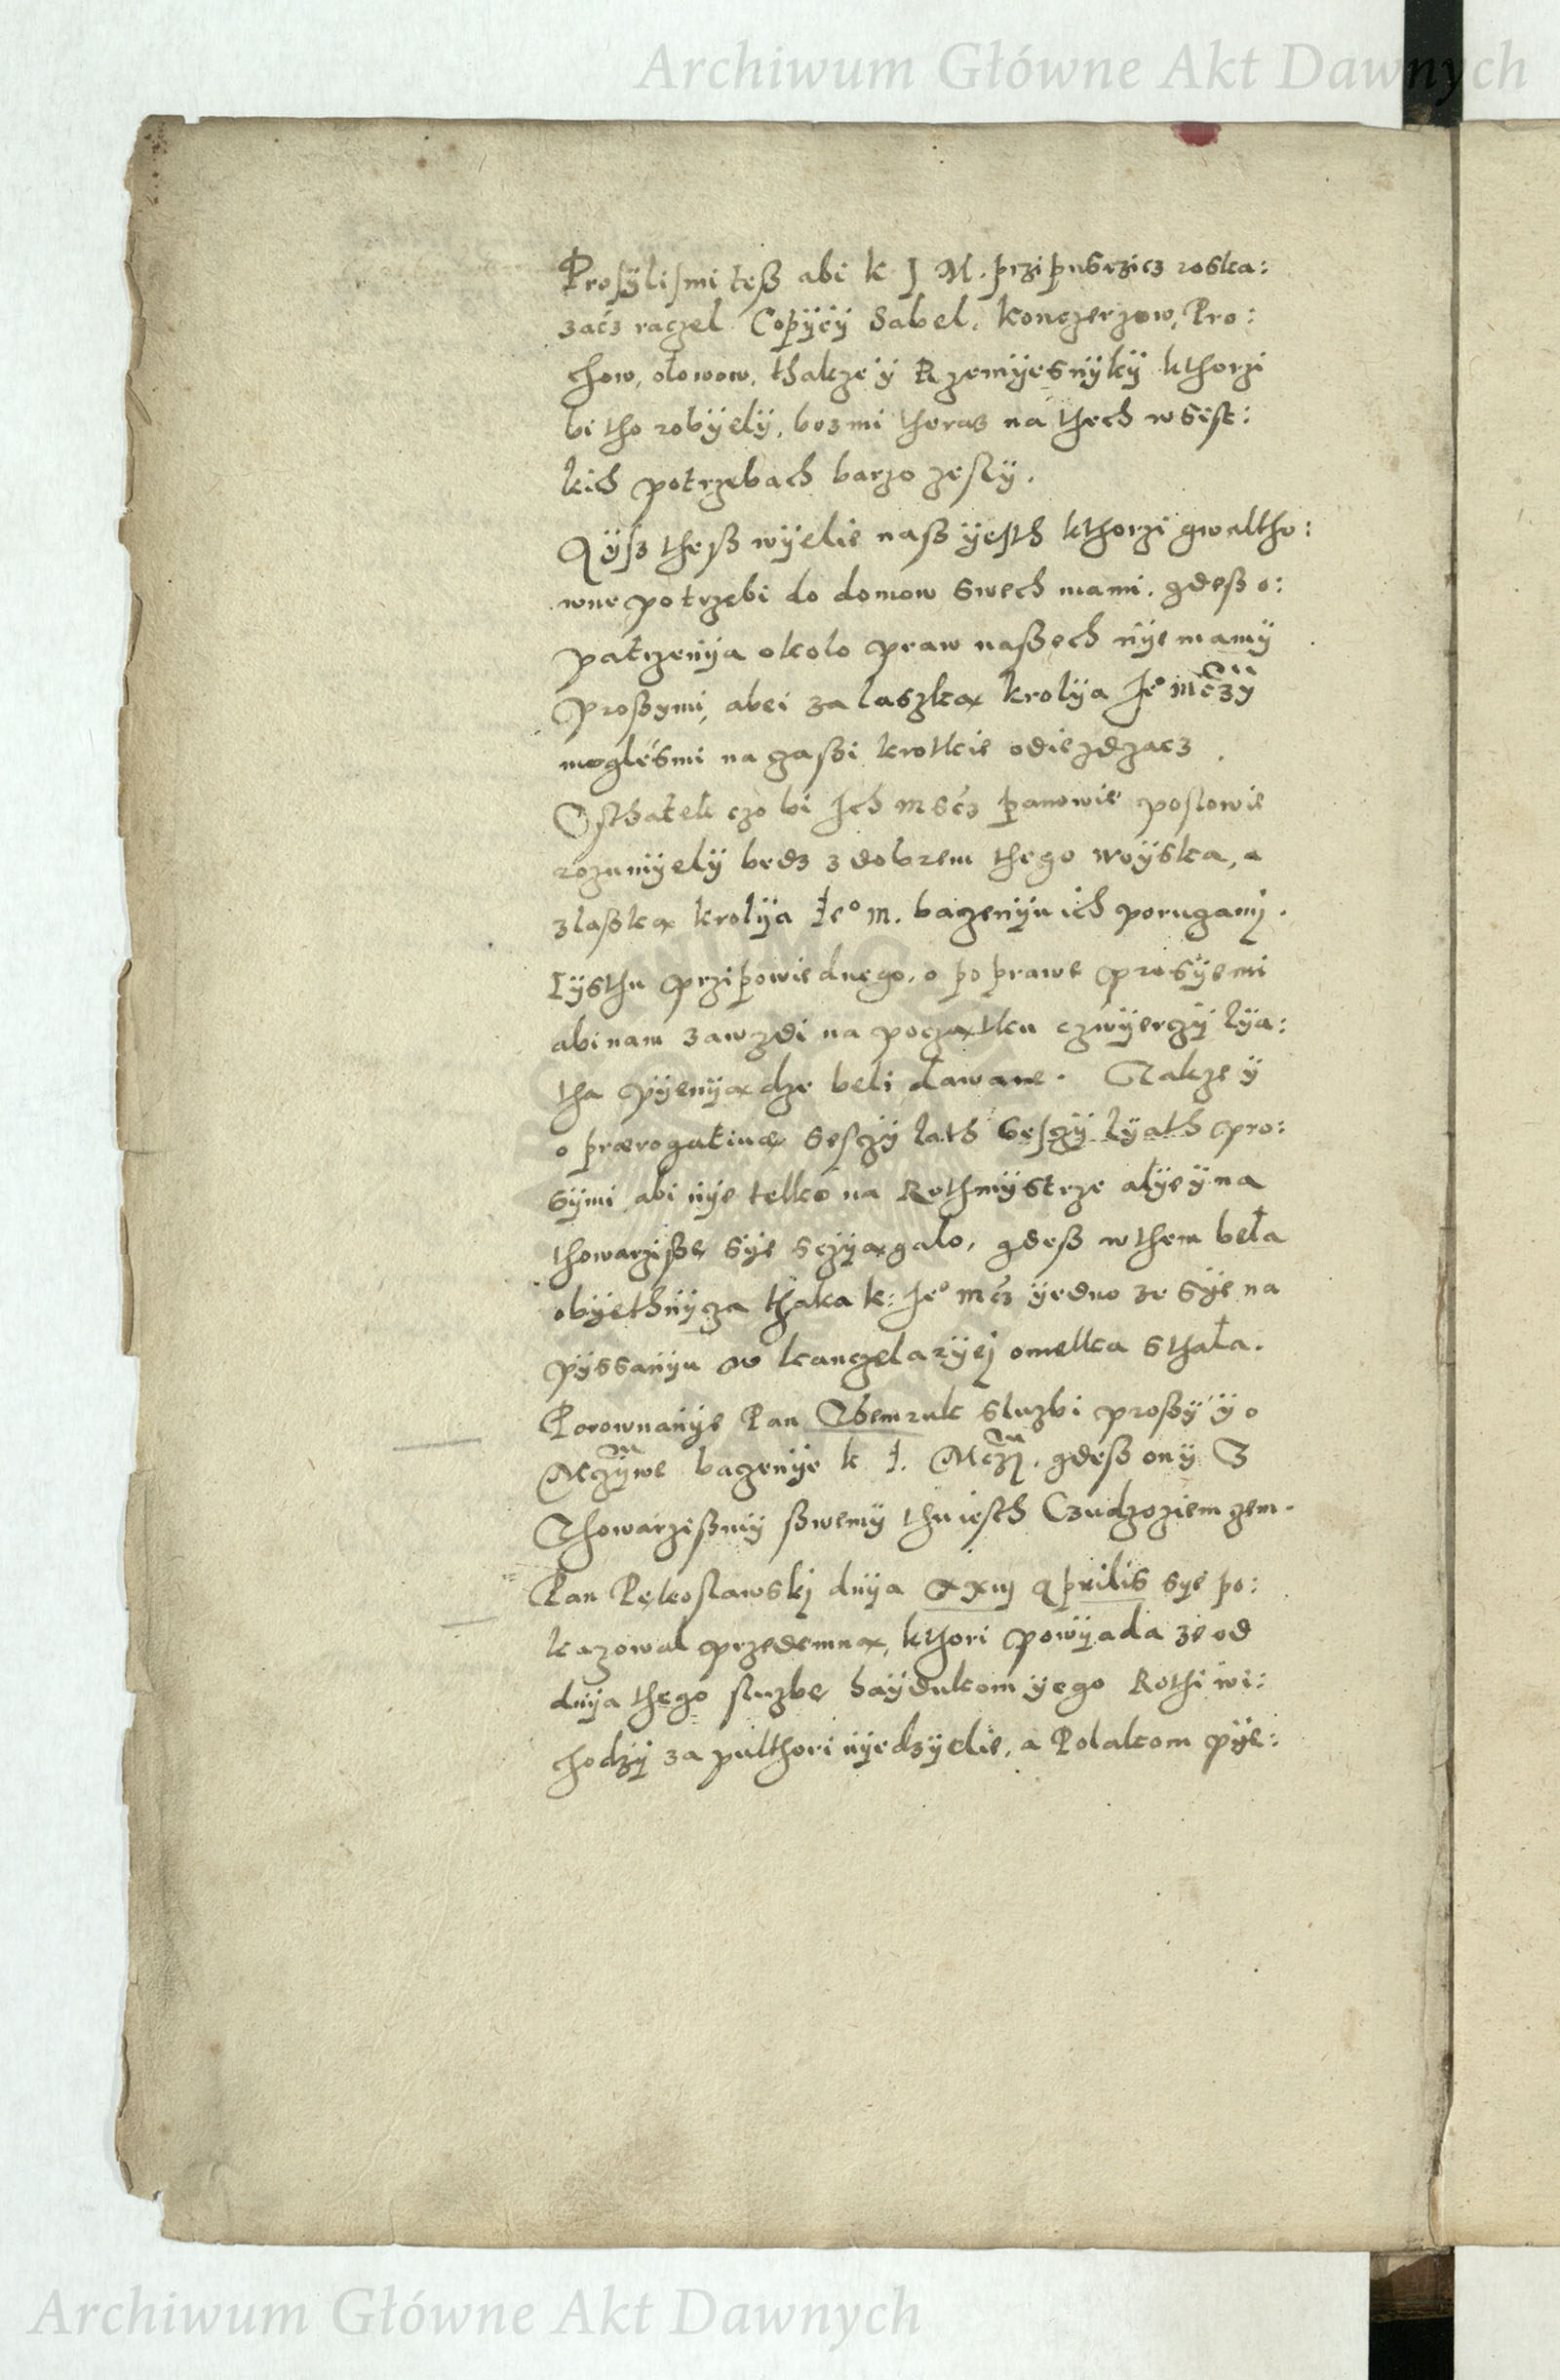 Archiwum Główne Akt Dawnych
Prosÿlismi teß abi k J M. przipusczicz roska:
zacz raczel Copÿcÿ Sabel, konczerzow, Pro:
chow, ołowow, thakze ÿ Rzemÿesnÿkÿ kthorzi
bi tho robÿelÿ, bozmi theraz na thech wsist:
kich potrzebach barzo zeslÿ.
Aÿsz theß wÿelie naß ÿesth kthorzi gwaltho:
wne potrzebi do domow swech mami, gdeß o:
patrzenÿa okolo praw naßech nÿe mamÿ
proßymi, abei za laszką krolÿa Jeº mczÿ
moglesmi na czaßi krotkie odiezdzacz.
Osthatek czo bi Jch mscz panowie poslowie
rozumÿelÿ bedz z dobrem thego woÿska, a
zlaßką krolÿa Jeº m. baczenÿu ich poruczamj.
Lÿsthu przipowiednego, o poprawe prosÿemi
abi nam zawzdi na początku czwÿerczÿ lÿa:
tha pÿenÿądze beli dawane. Takze ÿ
o prærogatiuæ sesczÿ lath sesczÿ lÿath pro:
sÿmi abi nÿe telko na Rothmÿstrze alÿe ÿ na
thowarziße sÿe sczÿągalo, gdeß wthem beła
obÿethnÿcza thaka k: Jeº mcz ÿedno ze sÿe na
pÿssanÿu w kanczelarÿej omelka sthała.
Porownanÿe Pan Themruk sluzbi proßÿ ÿ o
Mczÿwe baczenÿe k J. Mczj. gdeß onÿ Z
Thowarzißmÿ ßwemÿ thu iesth Czudzoziemczem.
Pan Pękoslawskj dnÿa xxiij Aprilis sÿe po:
kazowal przedemną, kthori powÿada ze od
dnÿa thego sluzbe haÿdukom ÿego Rothi wi:
chodzÿ za pulthori nÿedzÿelie, a Polakom pÿe:
Archiwum Główne Akt Dawnych